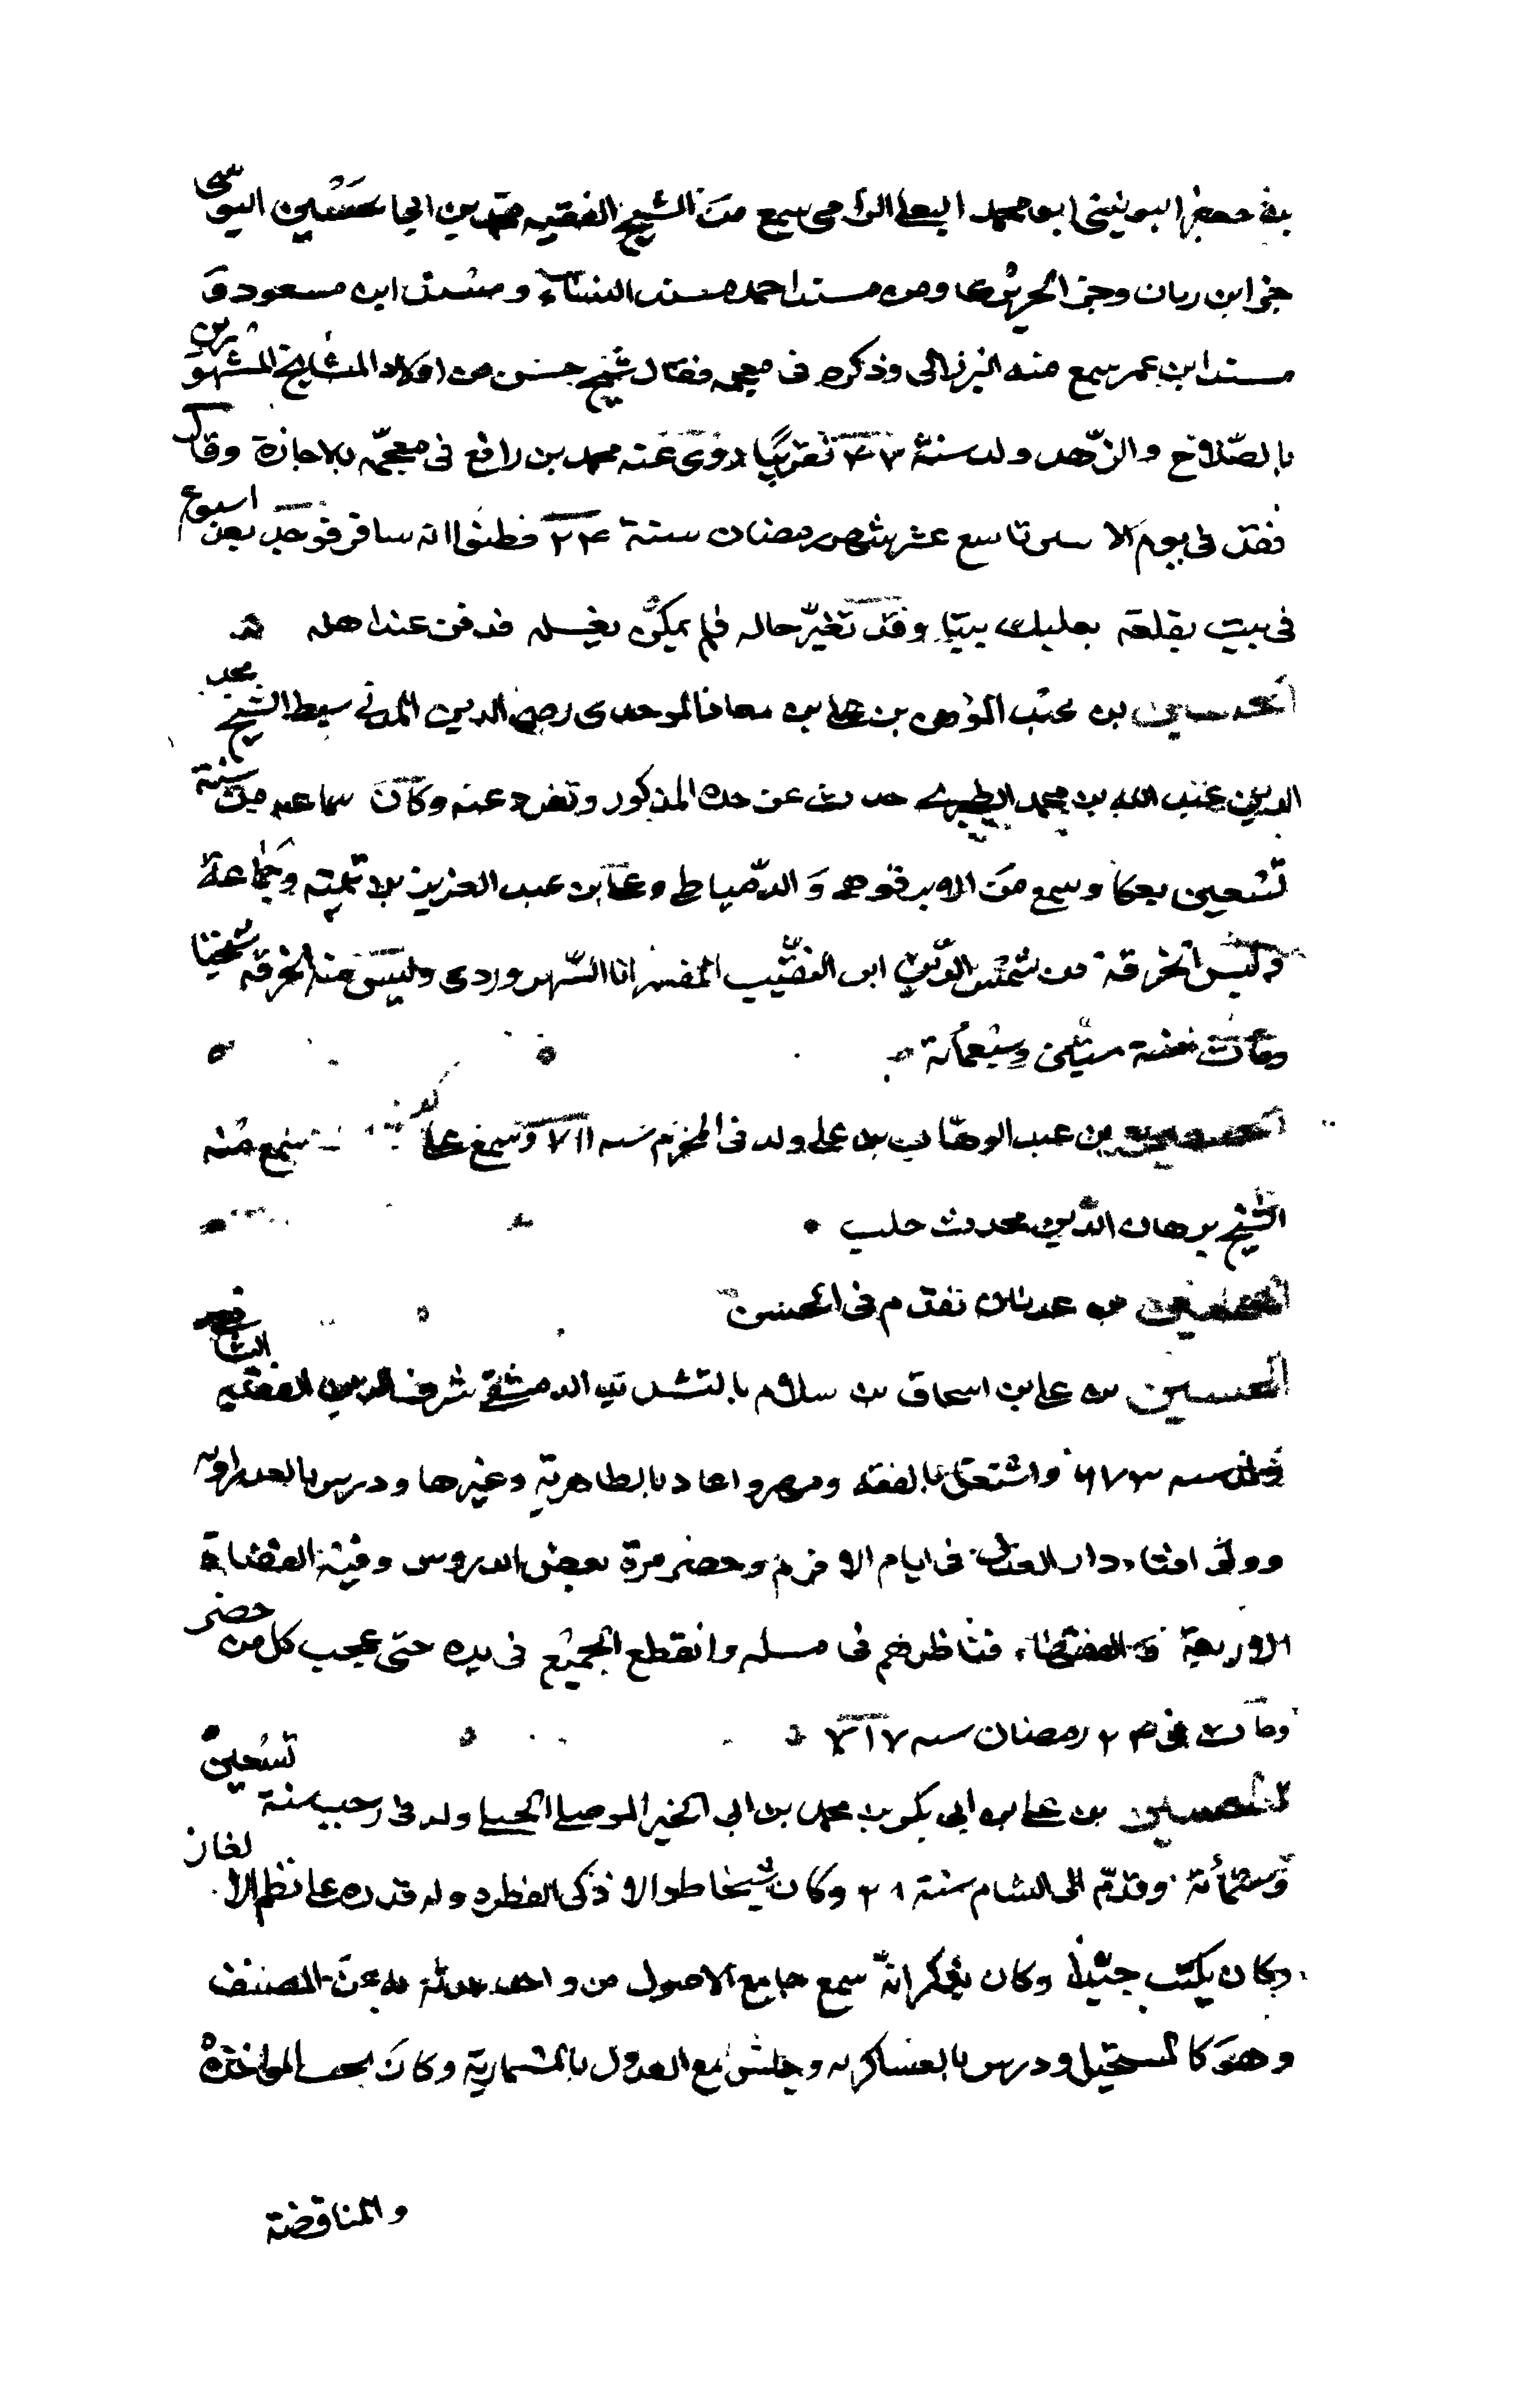 بن جعفر اليونيني ابو محمد البعلي الرامى سمع من الشيخ الفقيه محمد بن ابي الحسين اليونيني
جزء ابن زبان وجزء الحريري ومن مسند احمد مسند النساء ومسند ابن مسعود و
مسند ابن عمر سمع منه البرزالى وذكره فى معجمه فقال شيخ حسن من اولاد المشايخ المشهورين
بالصلاح والزهد ولد سنة ٤٧ تقريبًا روى عنه محمد بن رافع فى معجمه بالاجازة وقال
فقد فى يوم الا تاسع عشر شهر رمضان سنة ٢٤ فظنوا انه سافر فوجد بعد اسبوع
فى بيت بقلعة بعلبك ميتا وقد تغير حاله فلم يمكن بغسله فدفن عند اهله
الحسين بن عبد المؤمن بن على بن معاذ الموحدى رضى الدين المدنى سبط الشيخ محب
الدين عبد الله بن محمد الطبرى حدث عن جده المذكور وتفرد عنه وكان سماعه من سنة
تسعين بعكا وسمع من الابرقوهى والدمياطى وعلى بن عبد العزيز بلا تيمية وجماعة
ولبس الخرقة من شمس الدين ابن النقيب المفسر انا السهروردى ولبس منه الخرقة شيخنا
ومات سنة ستين وسبعمائة
الحسين بن عبد الوهاب بن على ولد فى المحرم سنه ٧١١ وسمع على سمع منه
الشيخ برهان الدين محدث حلب
الحسين بن عدنان تقدم فى الحسن
الحسين بن على بن اسحاق بن سلام بالتشديد الدمشقى شرف الدين الفقيه الشافعى
ولد سنه ٦٧٣ واشتغل بالفقه ومهر واعاد بالظاهرية وغيرها ودرس بالعذراويه
وولى افتاء دار العدل فى ايام الافرم وحضر مرة بعض الدروس وفيه القضاة
الاربعة والفضلاء فناظرهم فى مسله وانقطع الجميع فى يده حتى عجب كل من حضر
ومات فى ٢٤ رمضان سنه ٧١٧
الحسين بن على بن ابى بكر بن محمد بن ابى الخير الموصلى الحنبلى ولد فى رجب سنة تسعين
وستمائة وقدم الى الشام سنة ٢١ وكان شيخا طوالا ذكى الفطرة وله قدره على نظم الالغاز
وكان يكتب جيدا وكان يذكر انه سمع جامع الاصول من واحد حدثه به عن المصنف
وهو كالمستحيل ودرس بالعساكريه وجلس مع العدول بالمسمارية وكان يحب المؤاخذة
والمناقضة